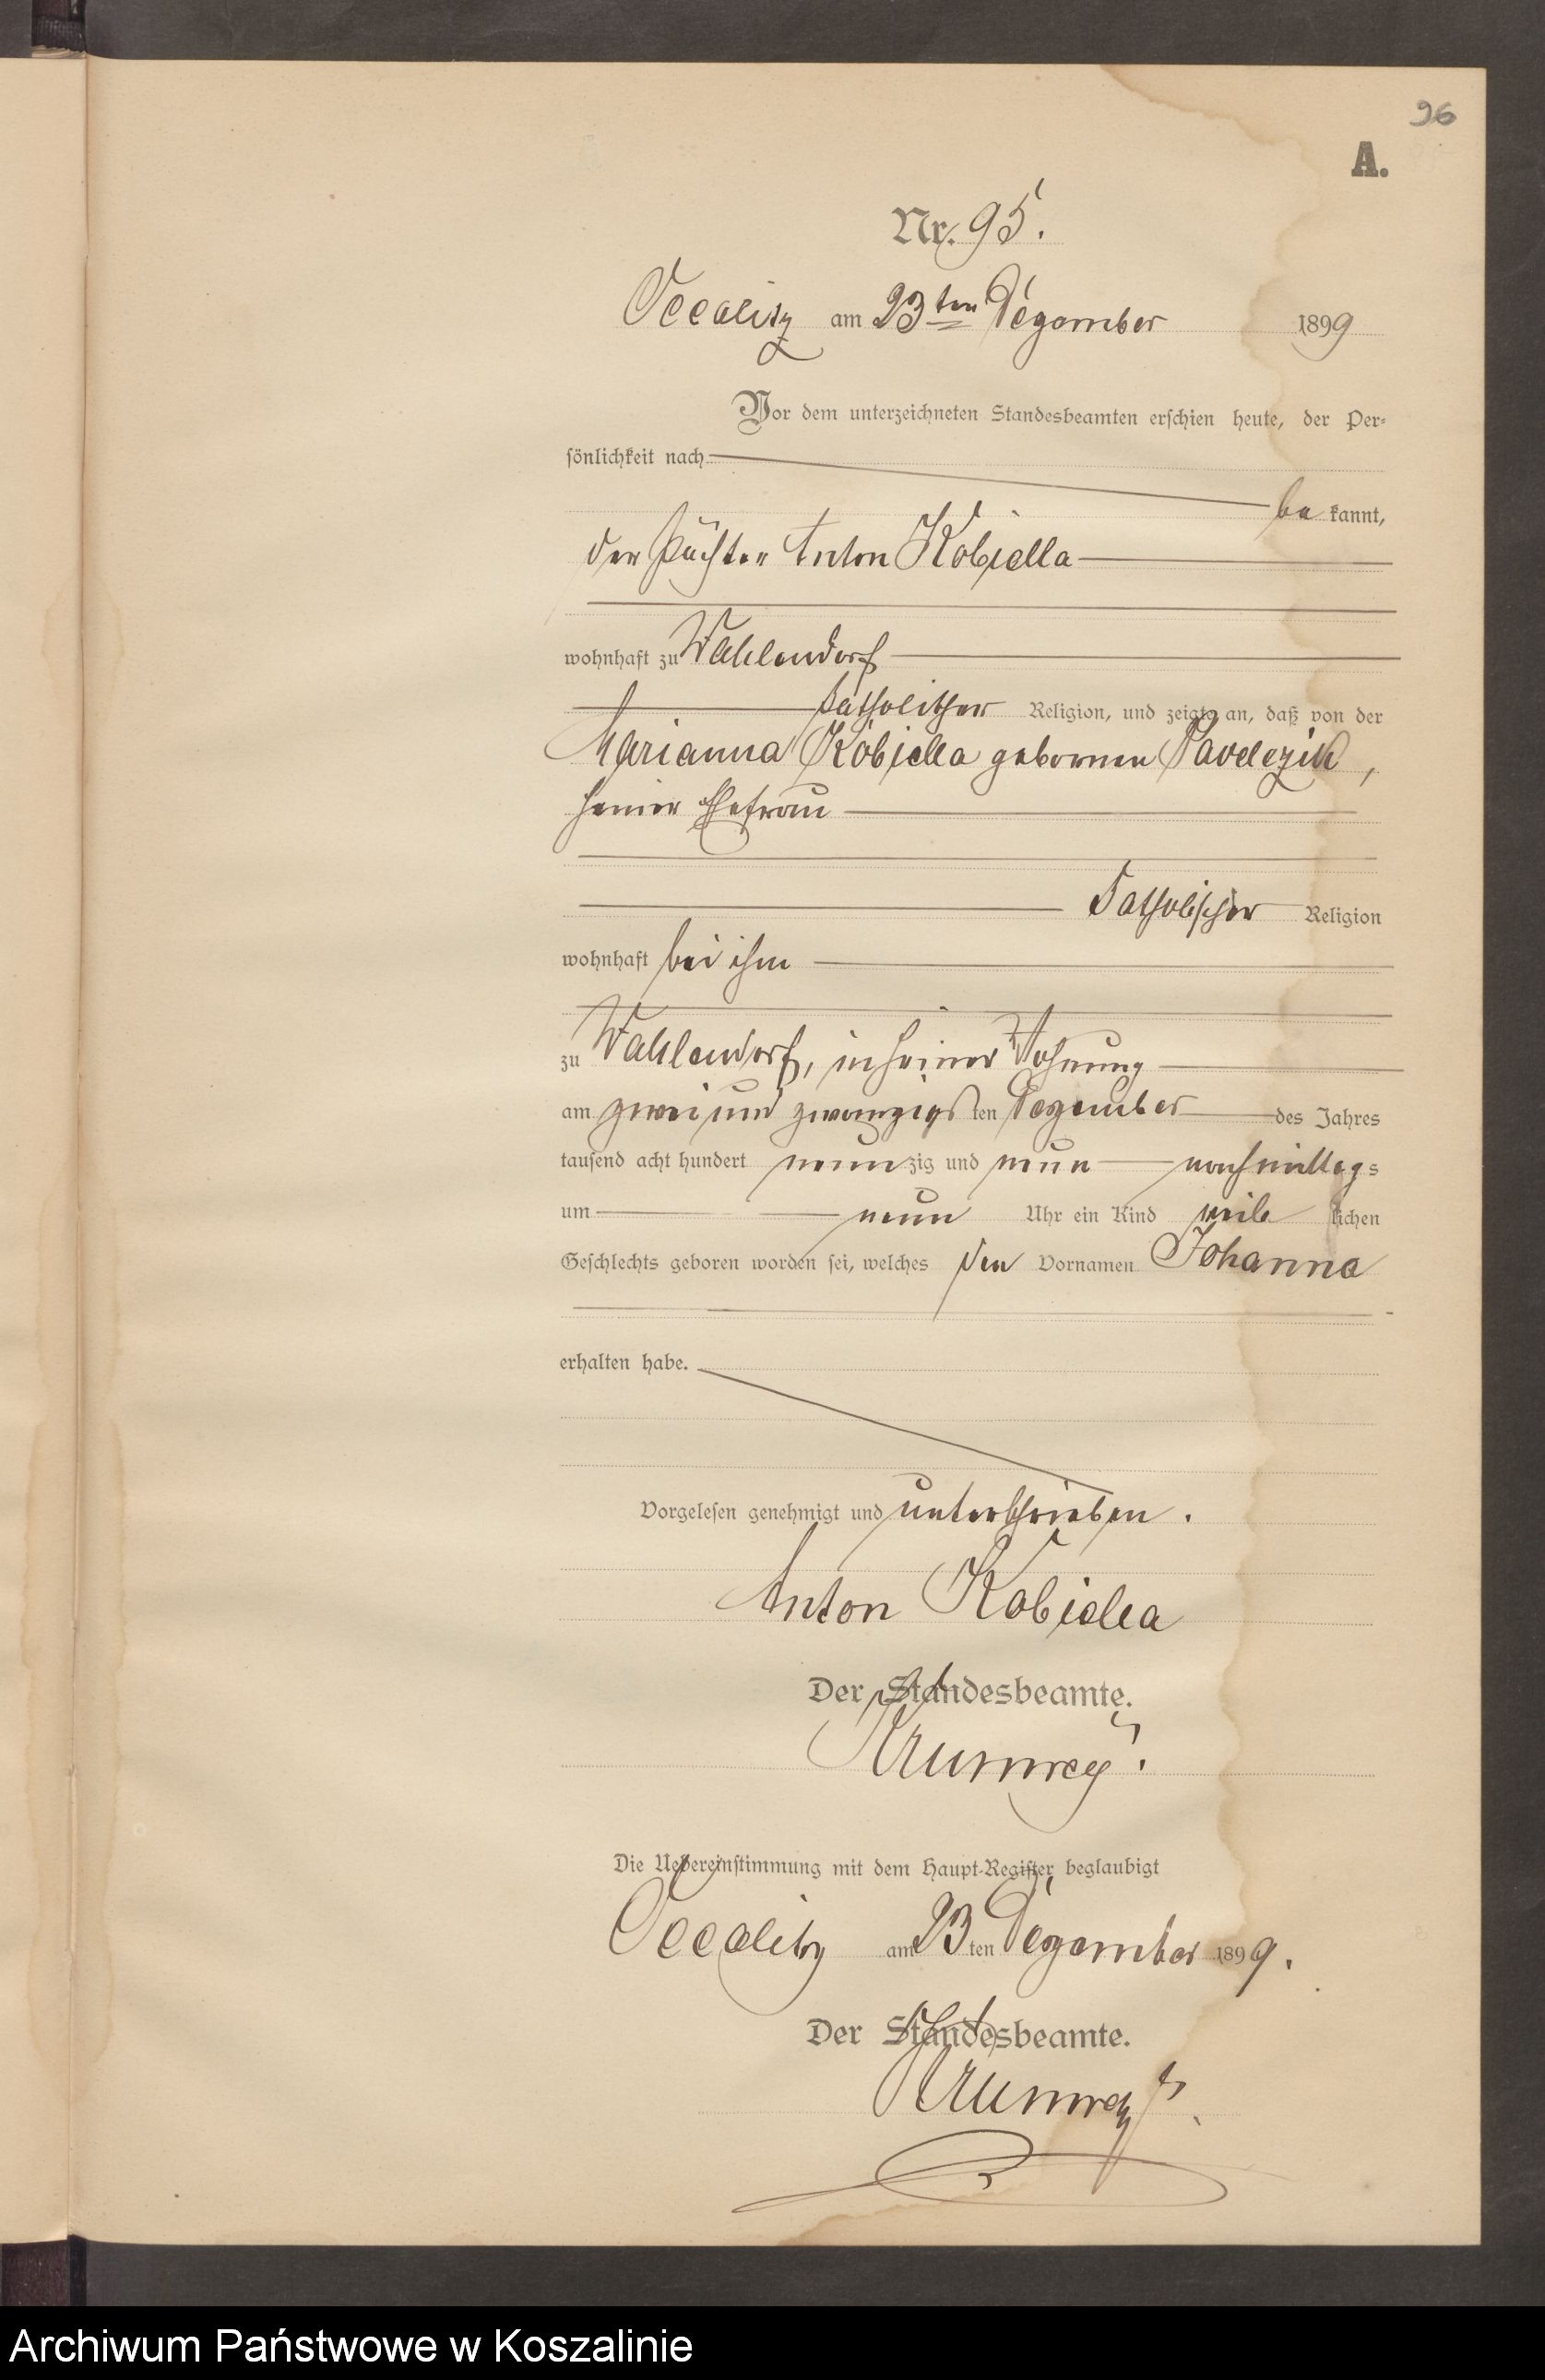 96
A.
Nr. 95.
Occalitz am 23ten Dezember 1899
Vor dem unterzeichneten Standesbeamten erschien heute, der Per-
sönlichkeit nach
be kannt,
der Pächter Anton Kobiella
wohnhaft zu Wahlendorf
katholischer Religion, und zeigte an, daß von der
Marianna Kobiella gebornen Pavelczik,
seiner Ehefrau
katholischer Religion
wohnhaft bei ihm
zu Wahlendorf, in seiner Wohnung
am zwei und zwanzigsten Dezember des Jahres
tausend acht hundert neunzig und neun nachmittags
um neun Uhr ein Kind weiblichen
Geschlechts geboren worden sei, welches den Vornamen Johanna
erhalten habe.
Vorgelesen genehmigt und unterschrieben.
Anton Kobiella
Der Standesbeamte.
Die Uebereinstimmung mit dem Haupt-Register beglaubigt
Occalitz am 23ten Dezember 1899.
Der Standesbeamte.
Archiwum Państwowe w Koszalinie